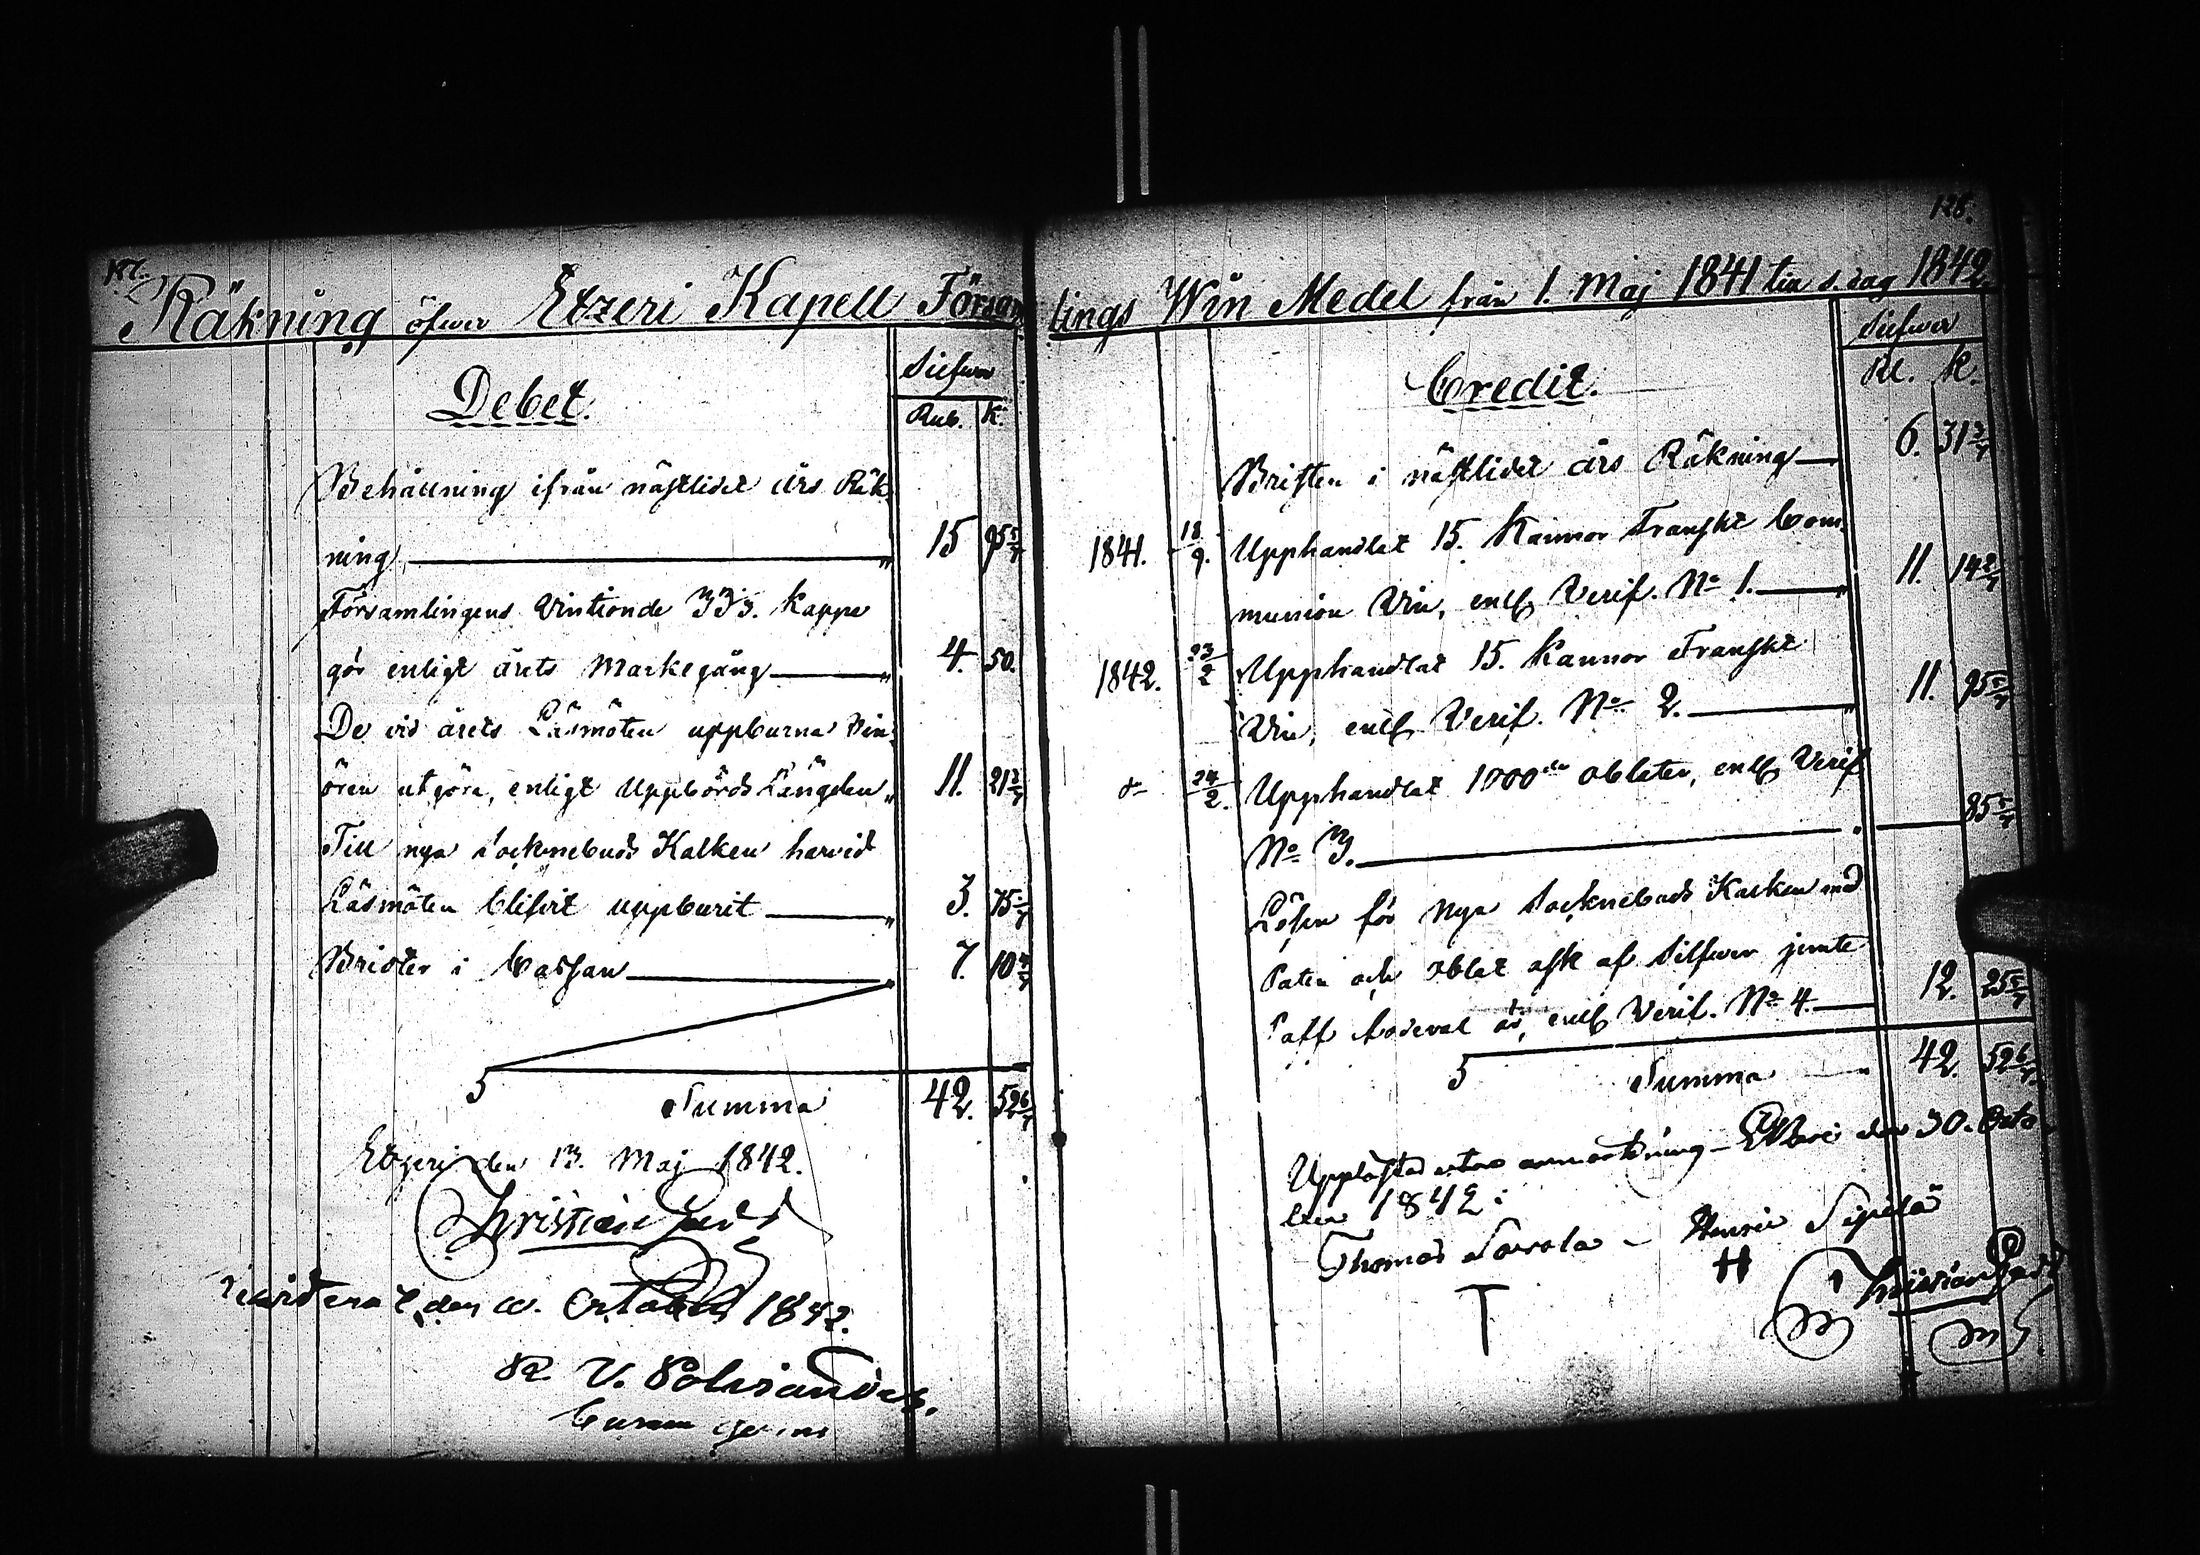 187.
Räkning öfwer Etzeri Kapell Församl
Debet.
Silfwer
Rub. K.
Behållning ifrån nästlidet års Räk
ning " 15 95 5/7
Församlingens Vintionde 333. Kappe
gör enligt årets Markegång " 4. 50.
De vid årets Läsmöten uppburna Vin
ören utgöra, enligt Uppbörds Längden " 11. 21 3/7
Till nya Socknebuds Kalken har vid
Läsmöten blifvit uppburit " 3. 75 5/7
Brister i Cassan " 7. 10
Summa 42. 52 6/7
Etzeri den 13. Maj 1842.
Christian
den October 1842.
V. Polviander.
128.
lings Win Medel från 1. Maj 1841 till s. dag 1842.
Credit.
Silfwer
Rl. K.
Bristen i nästlidet års Räkning 6. 31 3/7
1841. 18/9. Upphandlat 15. Kannor Franskt Com
munion Vin, enl. Verif. No 1. " 11. 14 2/7
1842. 23/2 Upphandlat 15. Kannor Franskt
Vin, enl. Verif. No 2. " 11. 95 5/7
24/2. Upphandlat 1000 oblater, enl. Verif
No 3. " 85 5/7
Lösen för nya Socknebuds Kalken med
Paten och oblat ask af Silfwer jemte
enl. Verif. No 4. 12. 25 5/7
Summa " 42. 52 6/7
Uppläst utan anmärkning Etzeri den 30. Octo
ber 1842:
Thomas Sorola - Henric Sipilä
T H
Christian